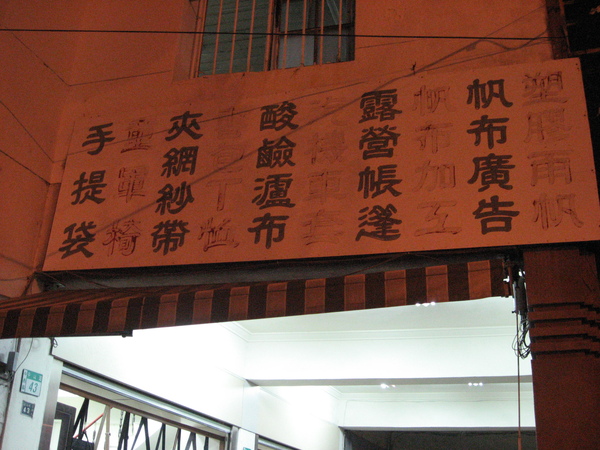 塑膠雨帆
帆布廣告
帆布加工
露營帳篷
酸鹼瀘布
夾網紗帶
手提袋
43